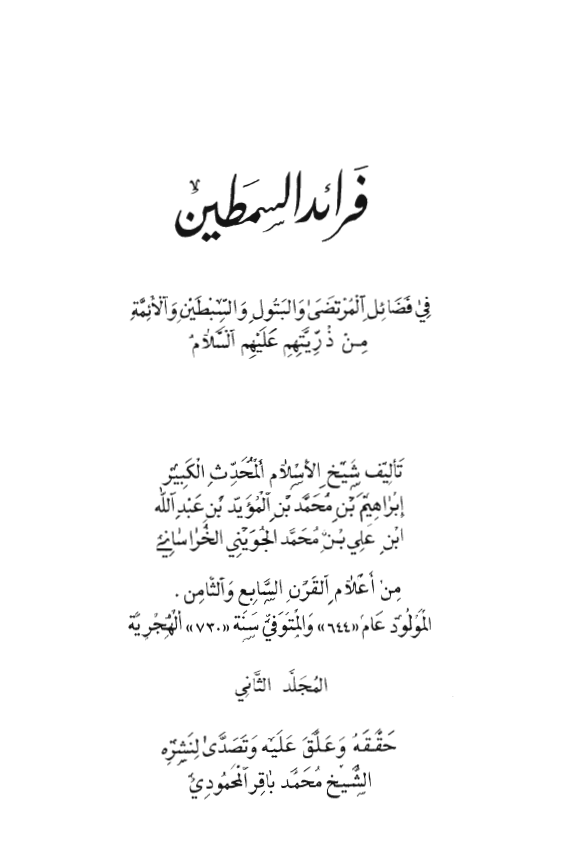 فَرائد السمطَين
فِي فَضَائِل الْمُرْتَضَىٰ وَالبَتُولِ وَالسِّبْطَيْنِ وَالْأَئِمَّةِ
مِنْ ذُرِّيَّتِهِم عَلَيْهِم السَّلَام
تَأليف شَيْخِ الإسْلَام المُحَدِّثِ الكَبِيْر
إِبْرَاهِيْم بْن مُحَمَّد بْن الْمُؤَيَّد بْن عَبْد اللّٰه
ابْن عَلِي بْن مُحَمَّد الجُوَيْنِي الخُرَاسَانِي
مِن أَعْلَام القَرْن السَّابِع وَالثَّامِن .
المَوْلُوْد عَام «٦٤٤» وَالمُتَوَفّي سَنَة «٧٣٠» الْهُجْرِيَّة
المُجَلَّد الثَّانِي
حَقَّقَهُ وَعَلَّقَ عَلَيْه وَتَصَدَّىٰ لِنَشْرِه
الشَّيْخ مُحَمَّد بَاقِر المَحْمُودِيُّ